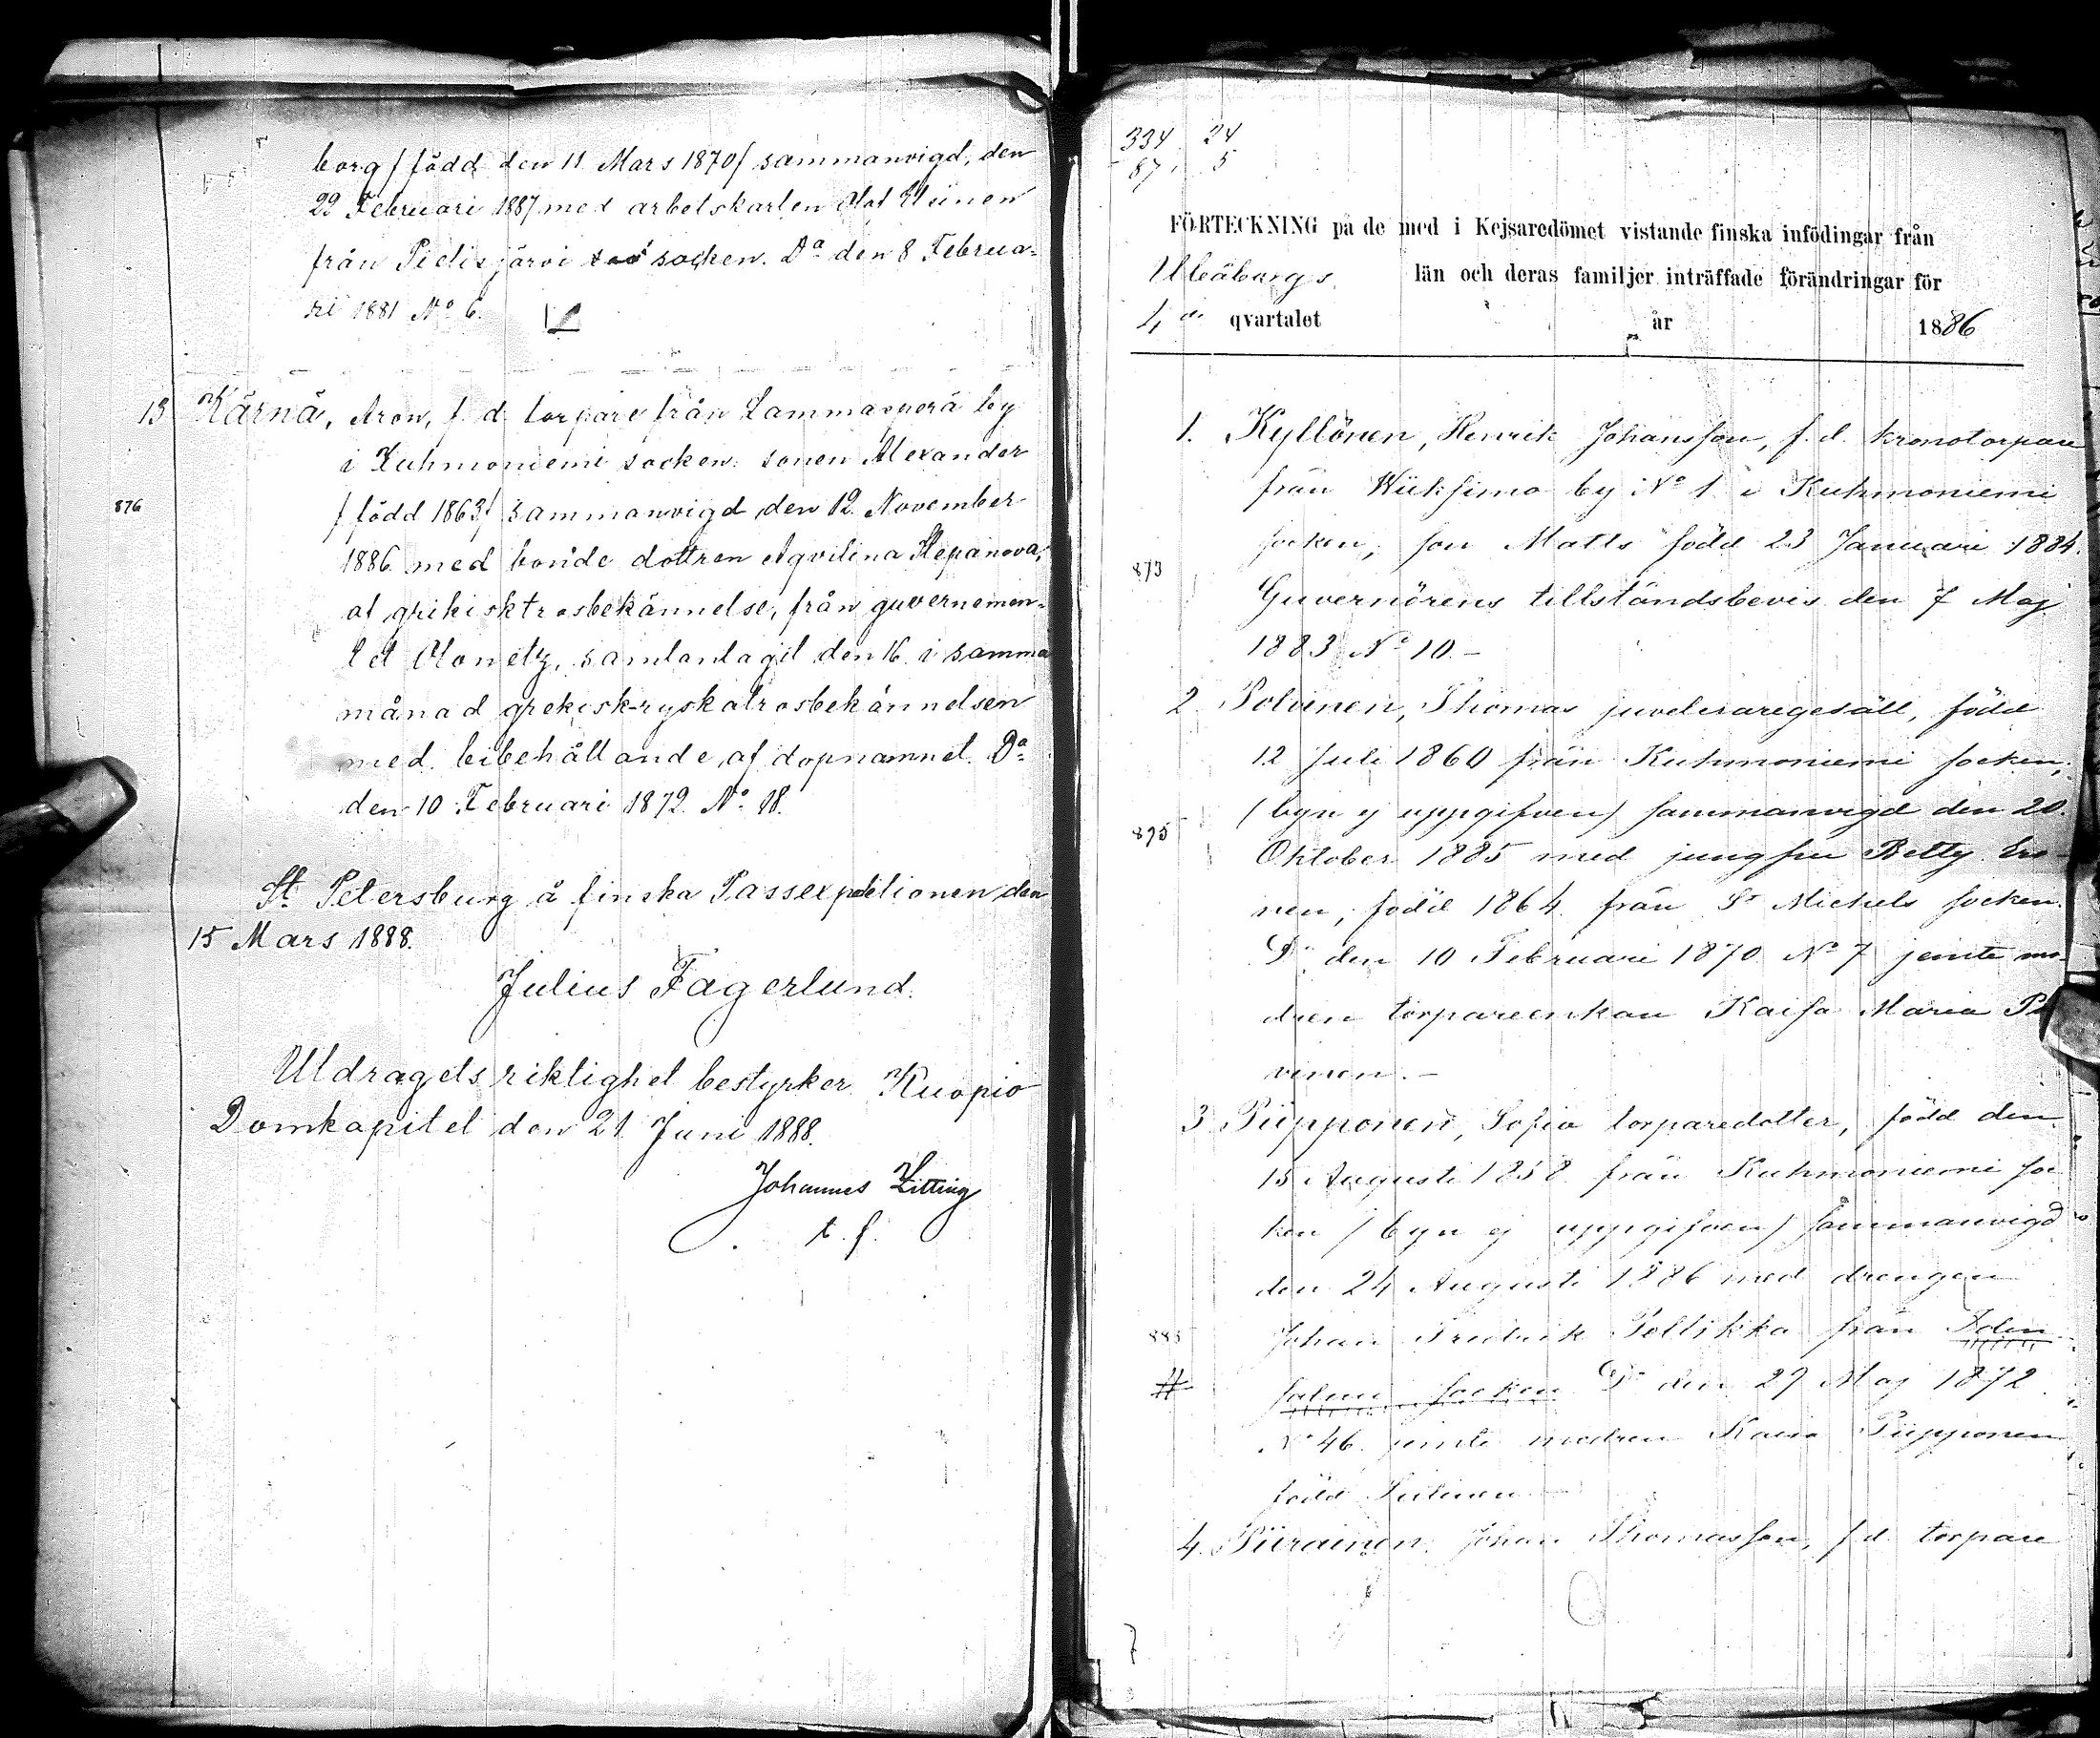 borg / född den 11 Mars 1870 / sammanvigd, den
22 Februari 1887 med arbetskarlen Olof
från Pielisjärvi socken. Dº den 8 Februa-
ri 1881 Nº 6.
13 Kärnä, Aron, f. d. torpare från Lammasperä by
i Kuhmoniemi socken: sonen Alexander
876 / född 1863 / sammanvigd den 12 November
1886 med bonde dottren Aqvilina Stepanova,
af grikisktrosbekännelse, från guvernemen-
tet Olonetz, samt antagit den 16 i samma
månad grekisk-ryska trosbekännelsen
med bibehållande af dopnamnet. Dº
den 10 Februari 1872 Nº 18.
St Petersburg å finska Passexpeditionen den
15 Mars 1888.
Julius Fagerlund.
Utdragets riktighet bestyrker Kuopio
Domkapitel den 21 Juni 1888.
Johannes Zitting
t. f.
334 24
87 5
FÖRTECKNING på de med i Kejsaredömet vistande finska infödingar från
Uleåborgs län och deras familjer inträffade förändringar för
4 de qvartalet år 1886
1. Kyllönen, Henrik Johansson, f. d. kronotorpare
från Wiiksimo by Nº 1 i Kuhmoniemi
socken, son Matts född 23 Januari 1884.
873 Guvernörens tillståndsbevis den 7 Maj
1883 Nº 10. –
2. Polvinen, Thomas juveleraregesäll, född
12 Juli 1860 från Kuhmoniemi socken,
(byn ej uppgifven) sammanvigd den 20
875 Oktober 1885 med jungfru Betty
nen, född 1864 från St Michels socken.
Dº den 10 Februari 1870 Nº 7 jemte mo-
dren torpareenkan Kaisa Maria Pol
vinen. –
3 Piipponen, Sofia torparedotter, född den
15 Augusti 1858 från Kuhmoniemi soc
ken / byn ej uppgifven / sammanvigd
den 24 Augusti 1886 med drengen
883 Johan Fredrik Peltikka från Iden
# salmi socken Dº den 29 Maj 1872
Nº 46 jemte modren Kaisa Piipponen
född
4. Piirainen Johan Thomasson, f d. torpare
7